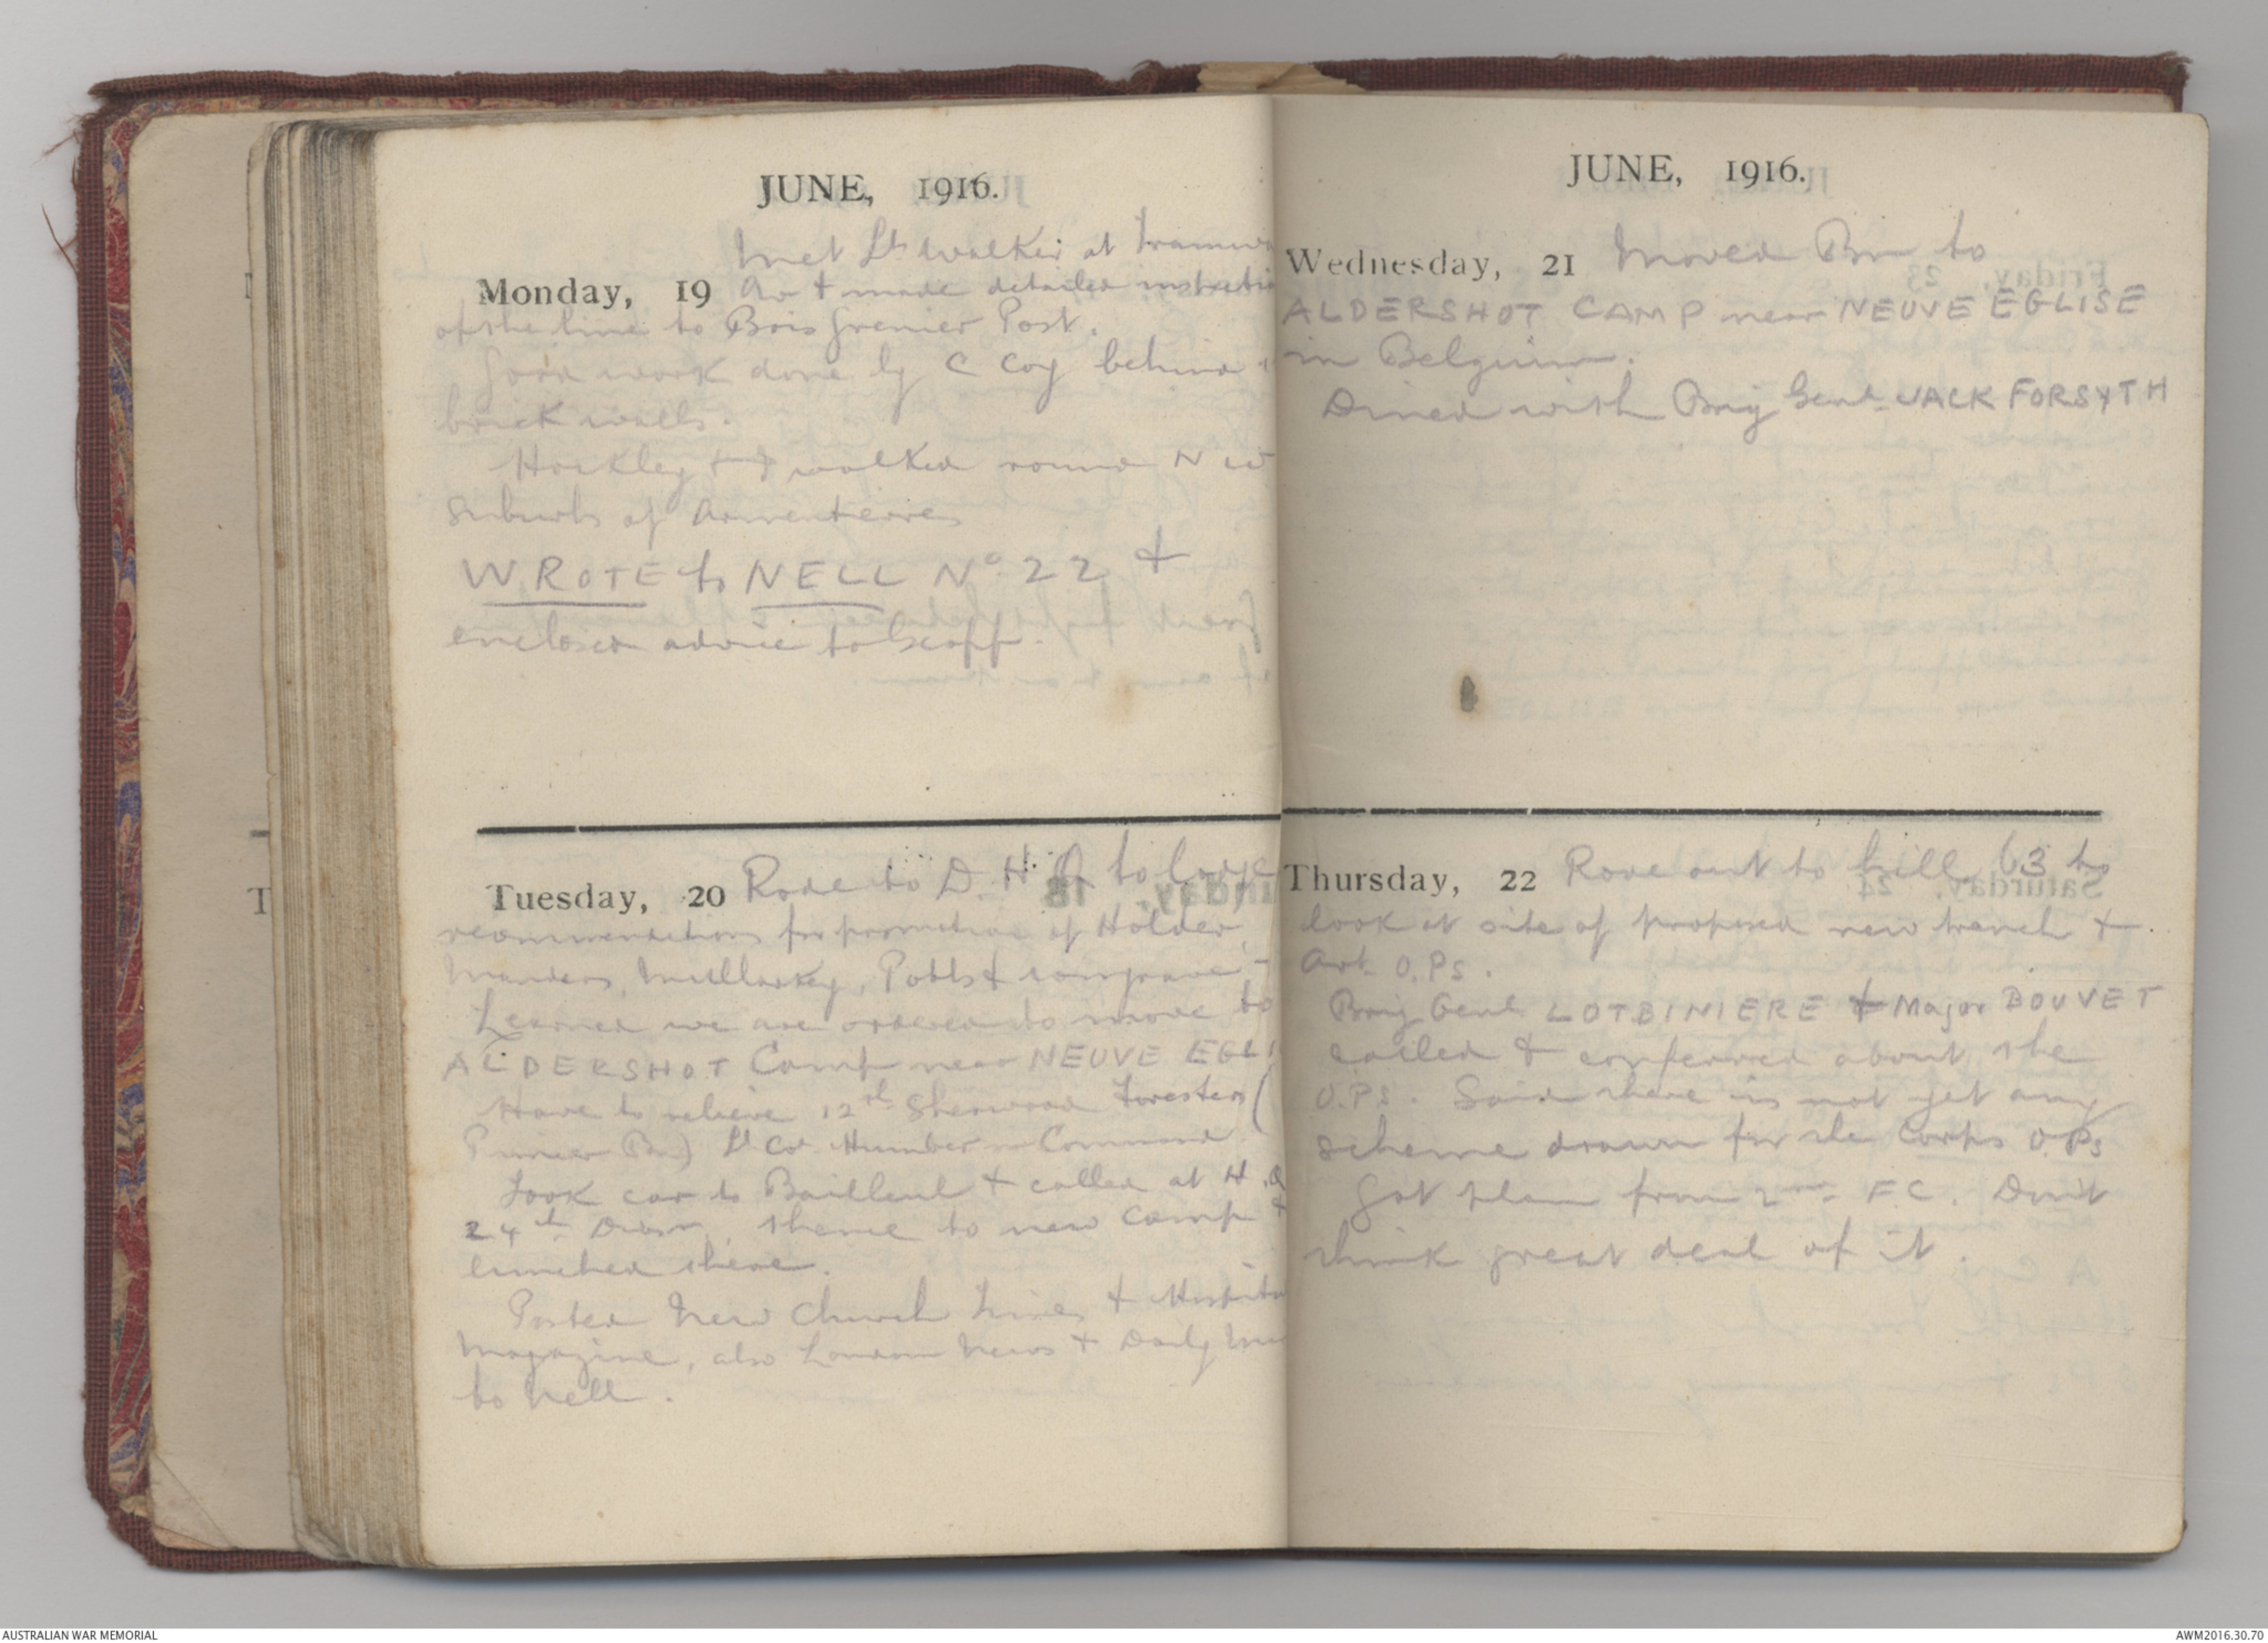 JUNE, 1916.
Met Lt Walker at Tramway
Monday, 19 Av + made detailed instructio
of the line to Bois Grenier Post.
Good work done by C Coy behind
brick walls.
Hockley + I walked round N W
suburbs of Armentieres
WROTE to NELL No 22 +
enclosed advice to Geoff.
Tuesday, 20 Rode to D.H.Q to lodge
recommendations for promotion of Holder,
Manders, Mullarkey, Potts +
Learned we are ordered to move to
ALDERSHOT Camp near NEUVE EGLI
Have to relieve 12th Sherwood Foresters (
Pioneer Bn) Lt Col Humber in Command
Took car to Bailleul + called at H.Q
24th Divsn, thence to new camp +
lunched there.
Posted New Church Times + Hospital
Magazine, also London News + Daily
to Nell.
JUNE, 1916.
Wednesday, 21 Moved Bn to
ALDERSHOT CAMP near NEUVE EGLISE
in Belgium.
Dined with Brig Genl JACK FORSYTH
Thursday, 22 Rode out to hill 63 to
look at site of proposed new trench +
Art O.Ps.
Brig Genl LOTBINIERE + Major BOUVET
called + conferred about the
O.Ps. Said there is not yet any
scheme drawn for the Corps O.Ps
Got plan from 2nd F.C. Don't
think great deal of it.
AUSTRALIAN WAR MEMORIAL
AWM2016.30.70